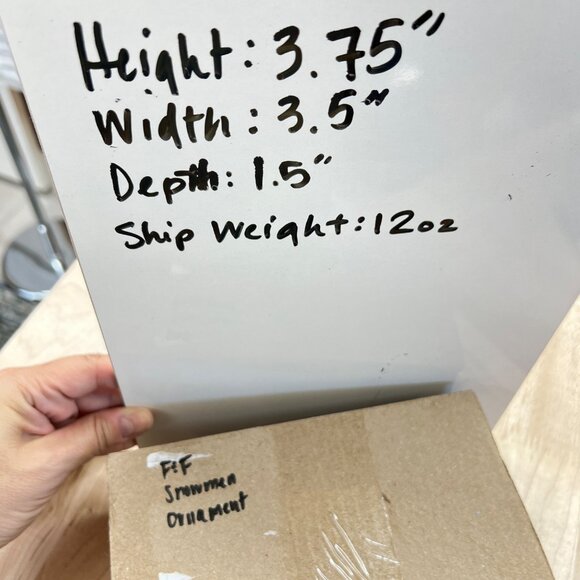 Height: 3.75"
Width: 3.5"
Depth: 1.5"
Ship Weight: 12oz
F&F
Snowmen
Ornament